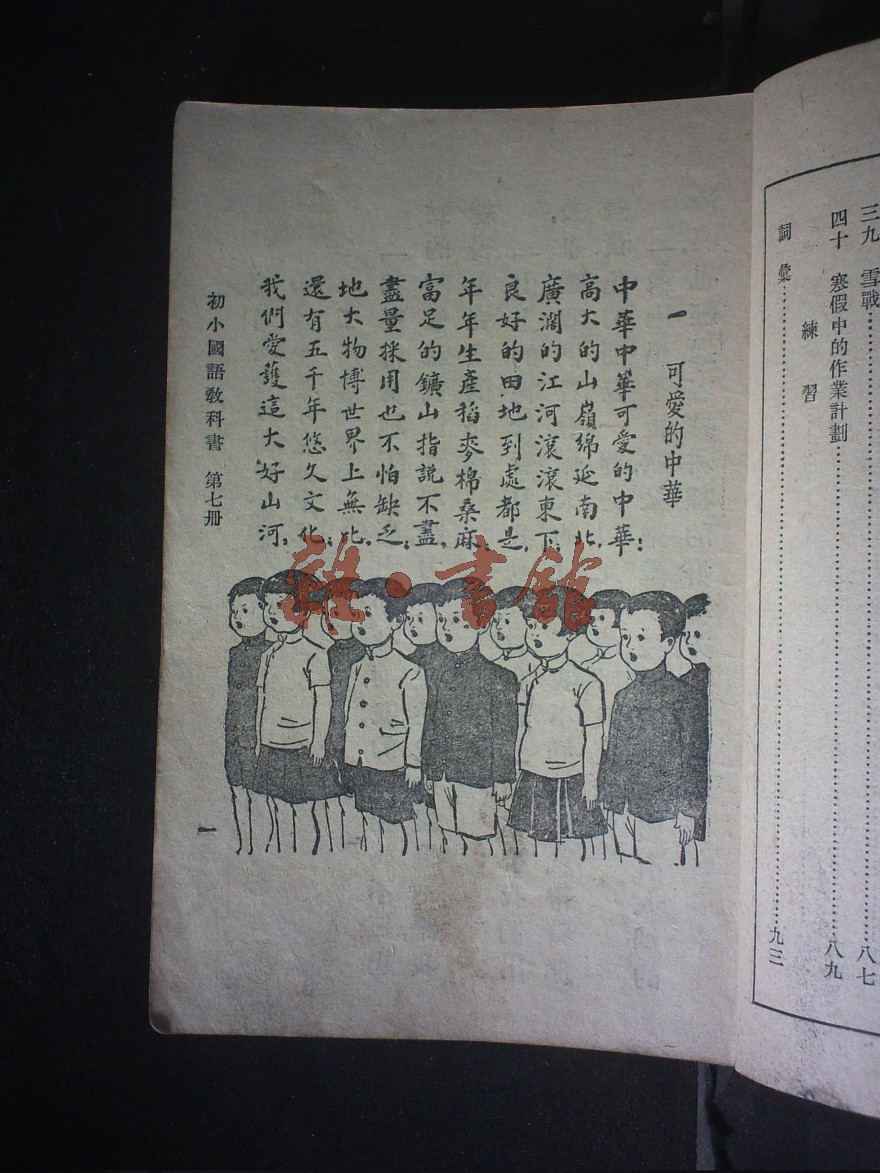 三九 雪戰……八七
四十 寒假中的作業計劃……八九
練習
詞彙……九三
一 可愛的中華
中華中華可愛的中華；
高大的山嶺綿延南北，
廣濶的江河滾滾東下，
良好的田地到處都是，
年年生產稻麥棉桑麻；
富足的鑛山指說不盡，
盡量採用也不怕缺乏；
地大物博世界上無比，
還有五千年悠久文化；
我們愛護這大好山河，
初小國語教科書 第七册
一
雜·書館